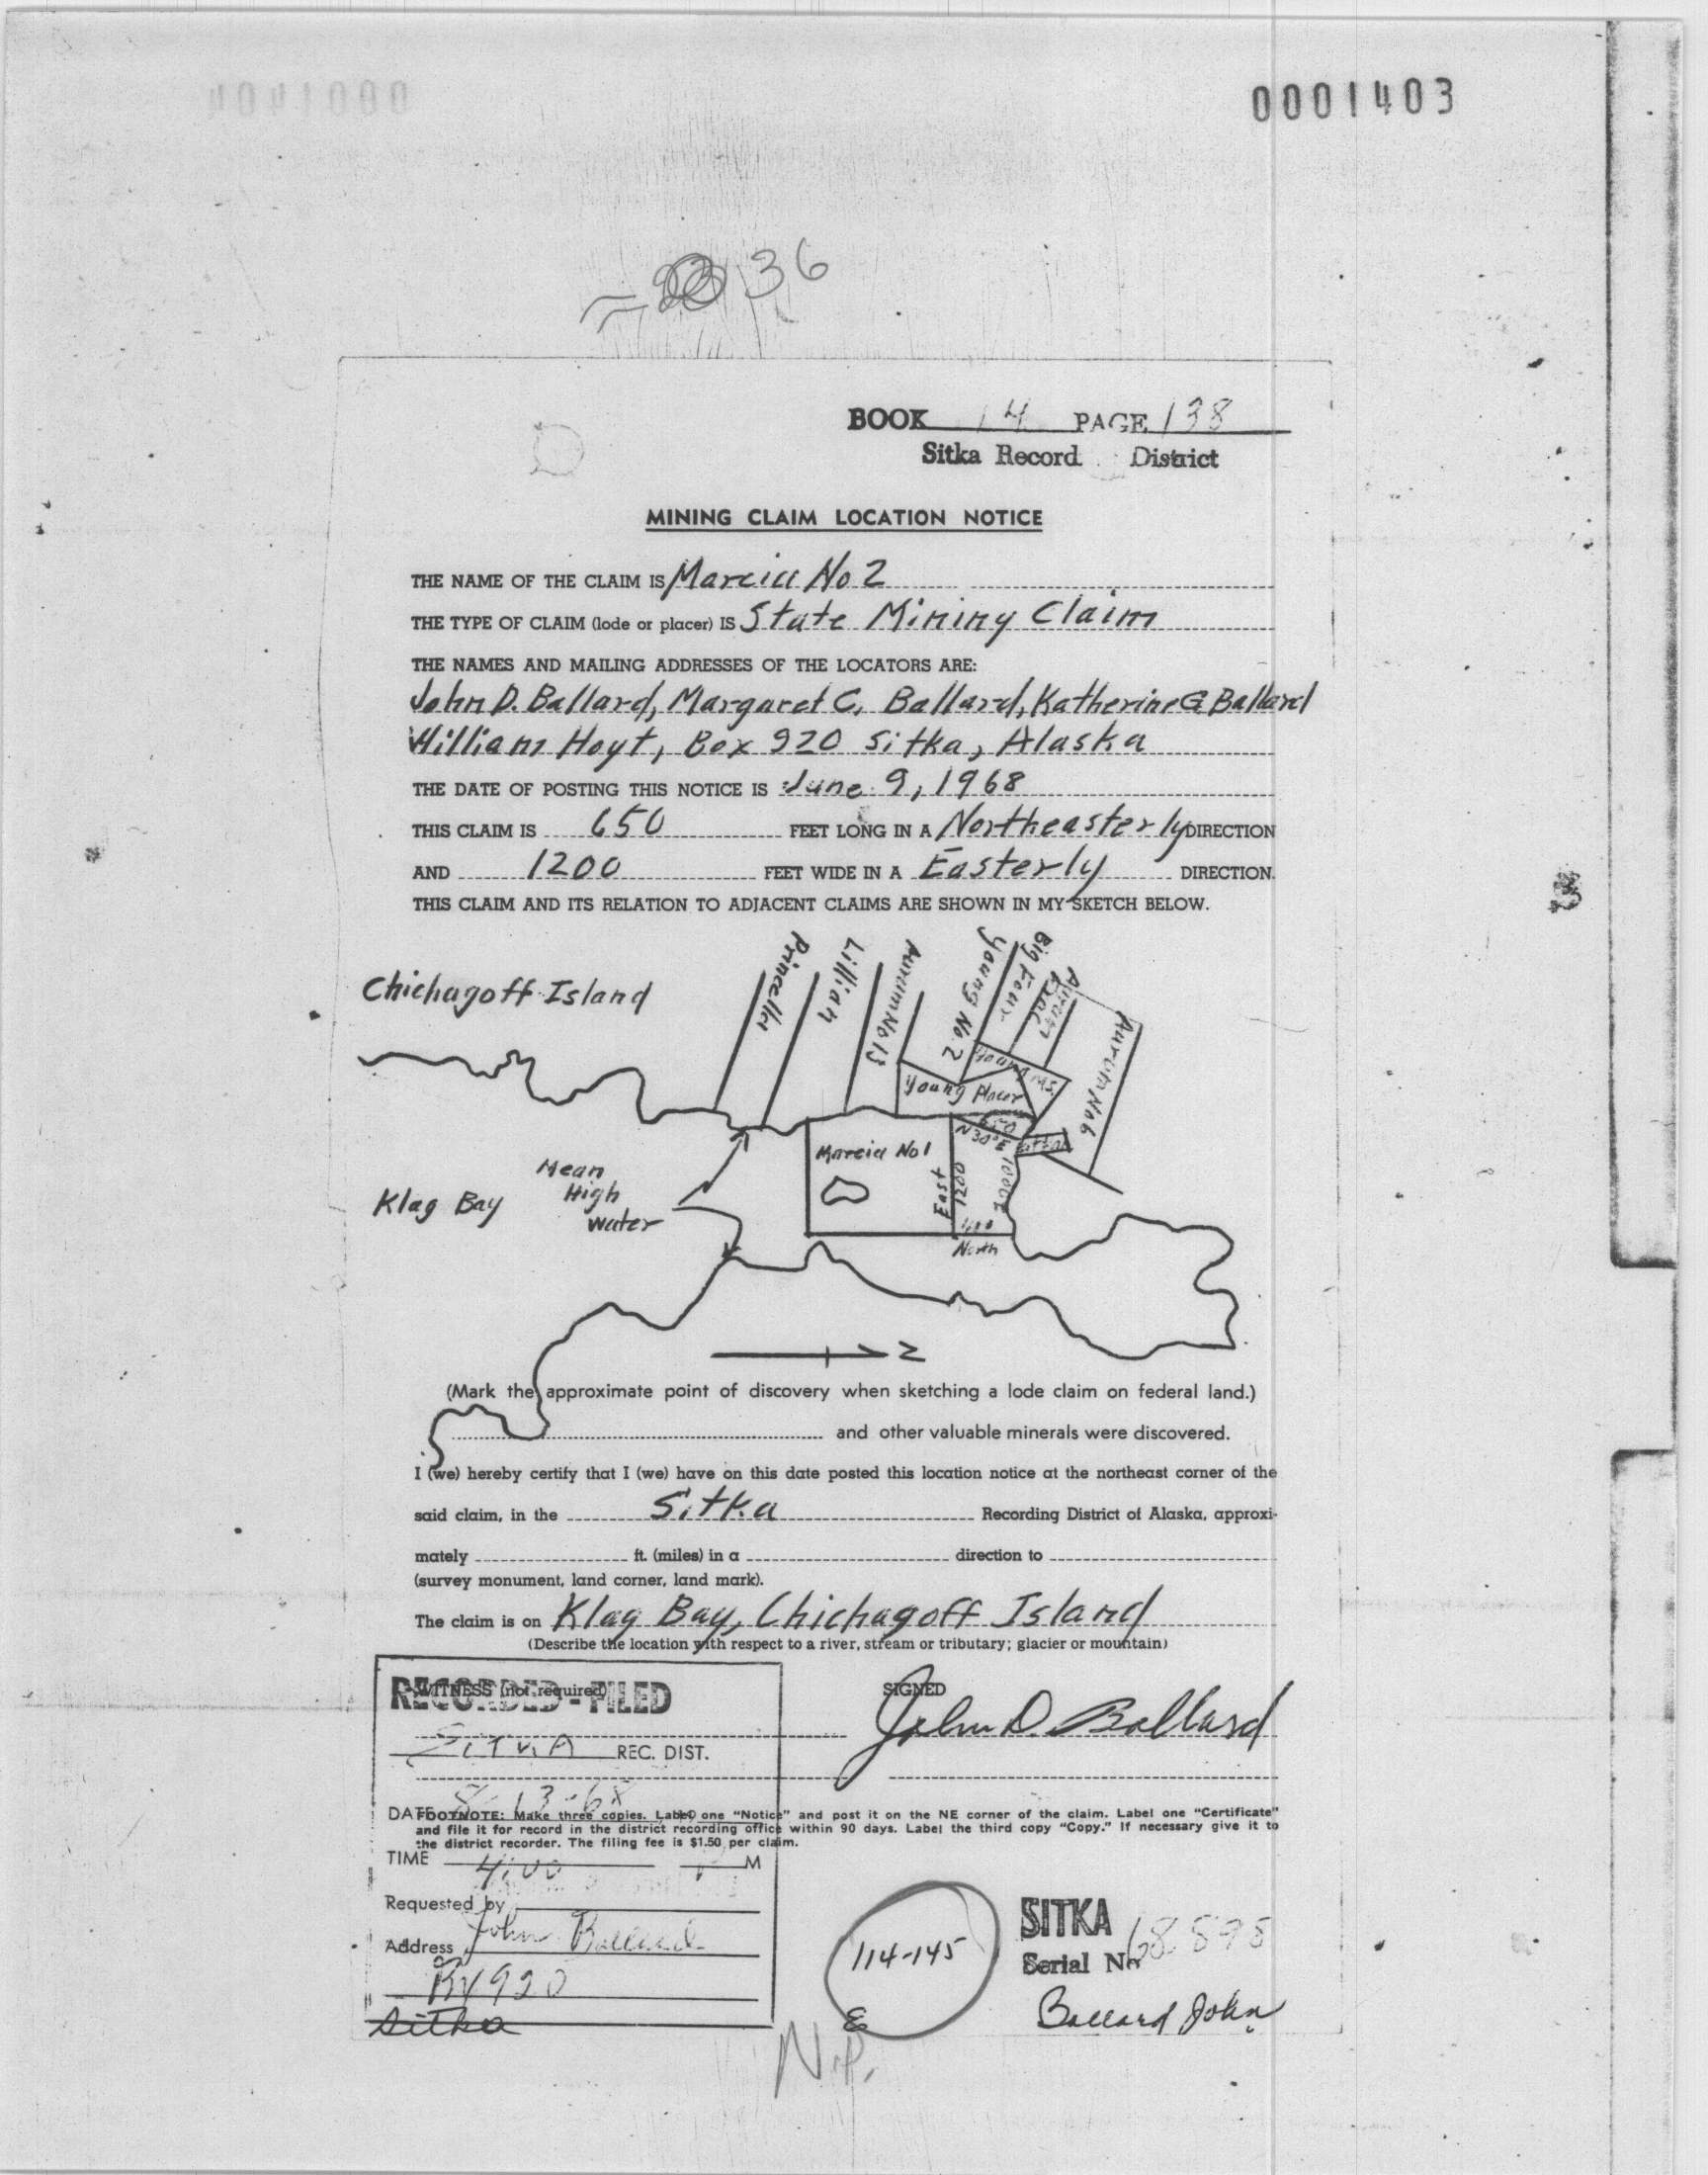 0001403
36
BOOK 14 PAGE 138
Sitka Record District
MINING CLAIM LOCATION NOTICE
THE NAME OF THE CLAIM IS Marcia No 2
THE TYPE OF CLAIM (lode or placer) IS State Mining Claim
THE NAMES AND MAILING ADDRESSES OF THE LOCATORS ARE:
John D. Ballard, Margaret C. Ballard, Katherine G Ballard
William Hoyt, Box 920 Sitka, Alaska
THE DATE OF POSTING THIS NOTICE IS June 9, 1968
THIS CLAIM IS 650 FEET LONG IN A Northeasterly DIRECTION
AND 1200 FEET WIDE IN A Easterly DIRECTION.
THIS CLAIM AND ITS RELATION TO ADJACENT CLAIMS ARE SHOWN IN MY SKETCH BELOW.
Chichagoff Island
Princella
Lillian
Aurum No 13
Young No 2
Big Four
Aurum No 6
Young M.S.
Young Placer
650
N30°E
Marcia No 1
East
1200
400
North
Mean
High
Water
Klag Bay
N
(Mark the approximate point of discovery when sketching a lode claim on federal land.)
and other valuable minerals were discovered.
I (we) hereby certify that I (we) have on this date posted this location notice at the northeast corner of the
said claim, in the Sitka Recording District of Alaska, approxi-
mately ft. (miles) in a direction to
(survey monument, land corner, land mark).
The claim is on Klag Bay, Chichagoff Island
(Describe the location with respect to a river, stream or tributary; glacier or mountain)
WITNESS (not required)
RECORDED - FILED
SIGNED
John D. Ballard
SITKA REC. DIST.
DATE 8-13-68
FOOTNOTE: Make three copies. Label one "Notice" and post it on the NE corner of the claim. Label one "Certificate"
and file it for record in the district recording office within 90 days. Label the third copy "Copy." If necessary give it to
the district recorder. The filing fee is $1.50 per claim.
TIME 4:00 P M
Requested by John Ballard
Address Bx 920
Sitka
114-145
E
SITKA
Serial No 68-898
Ballard John
N.P.